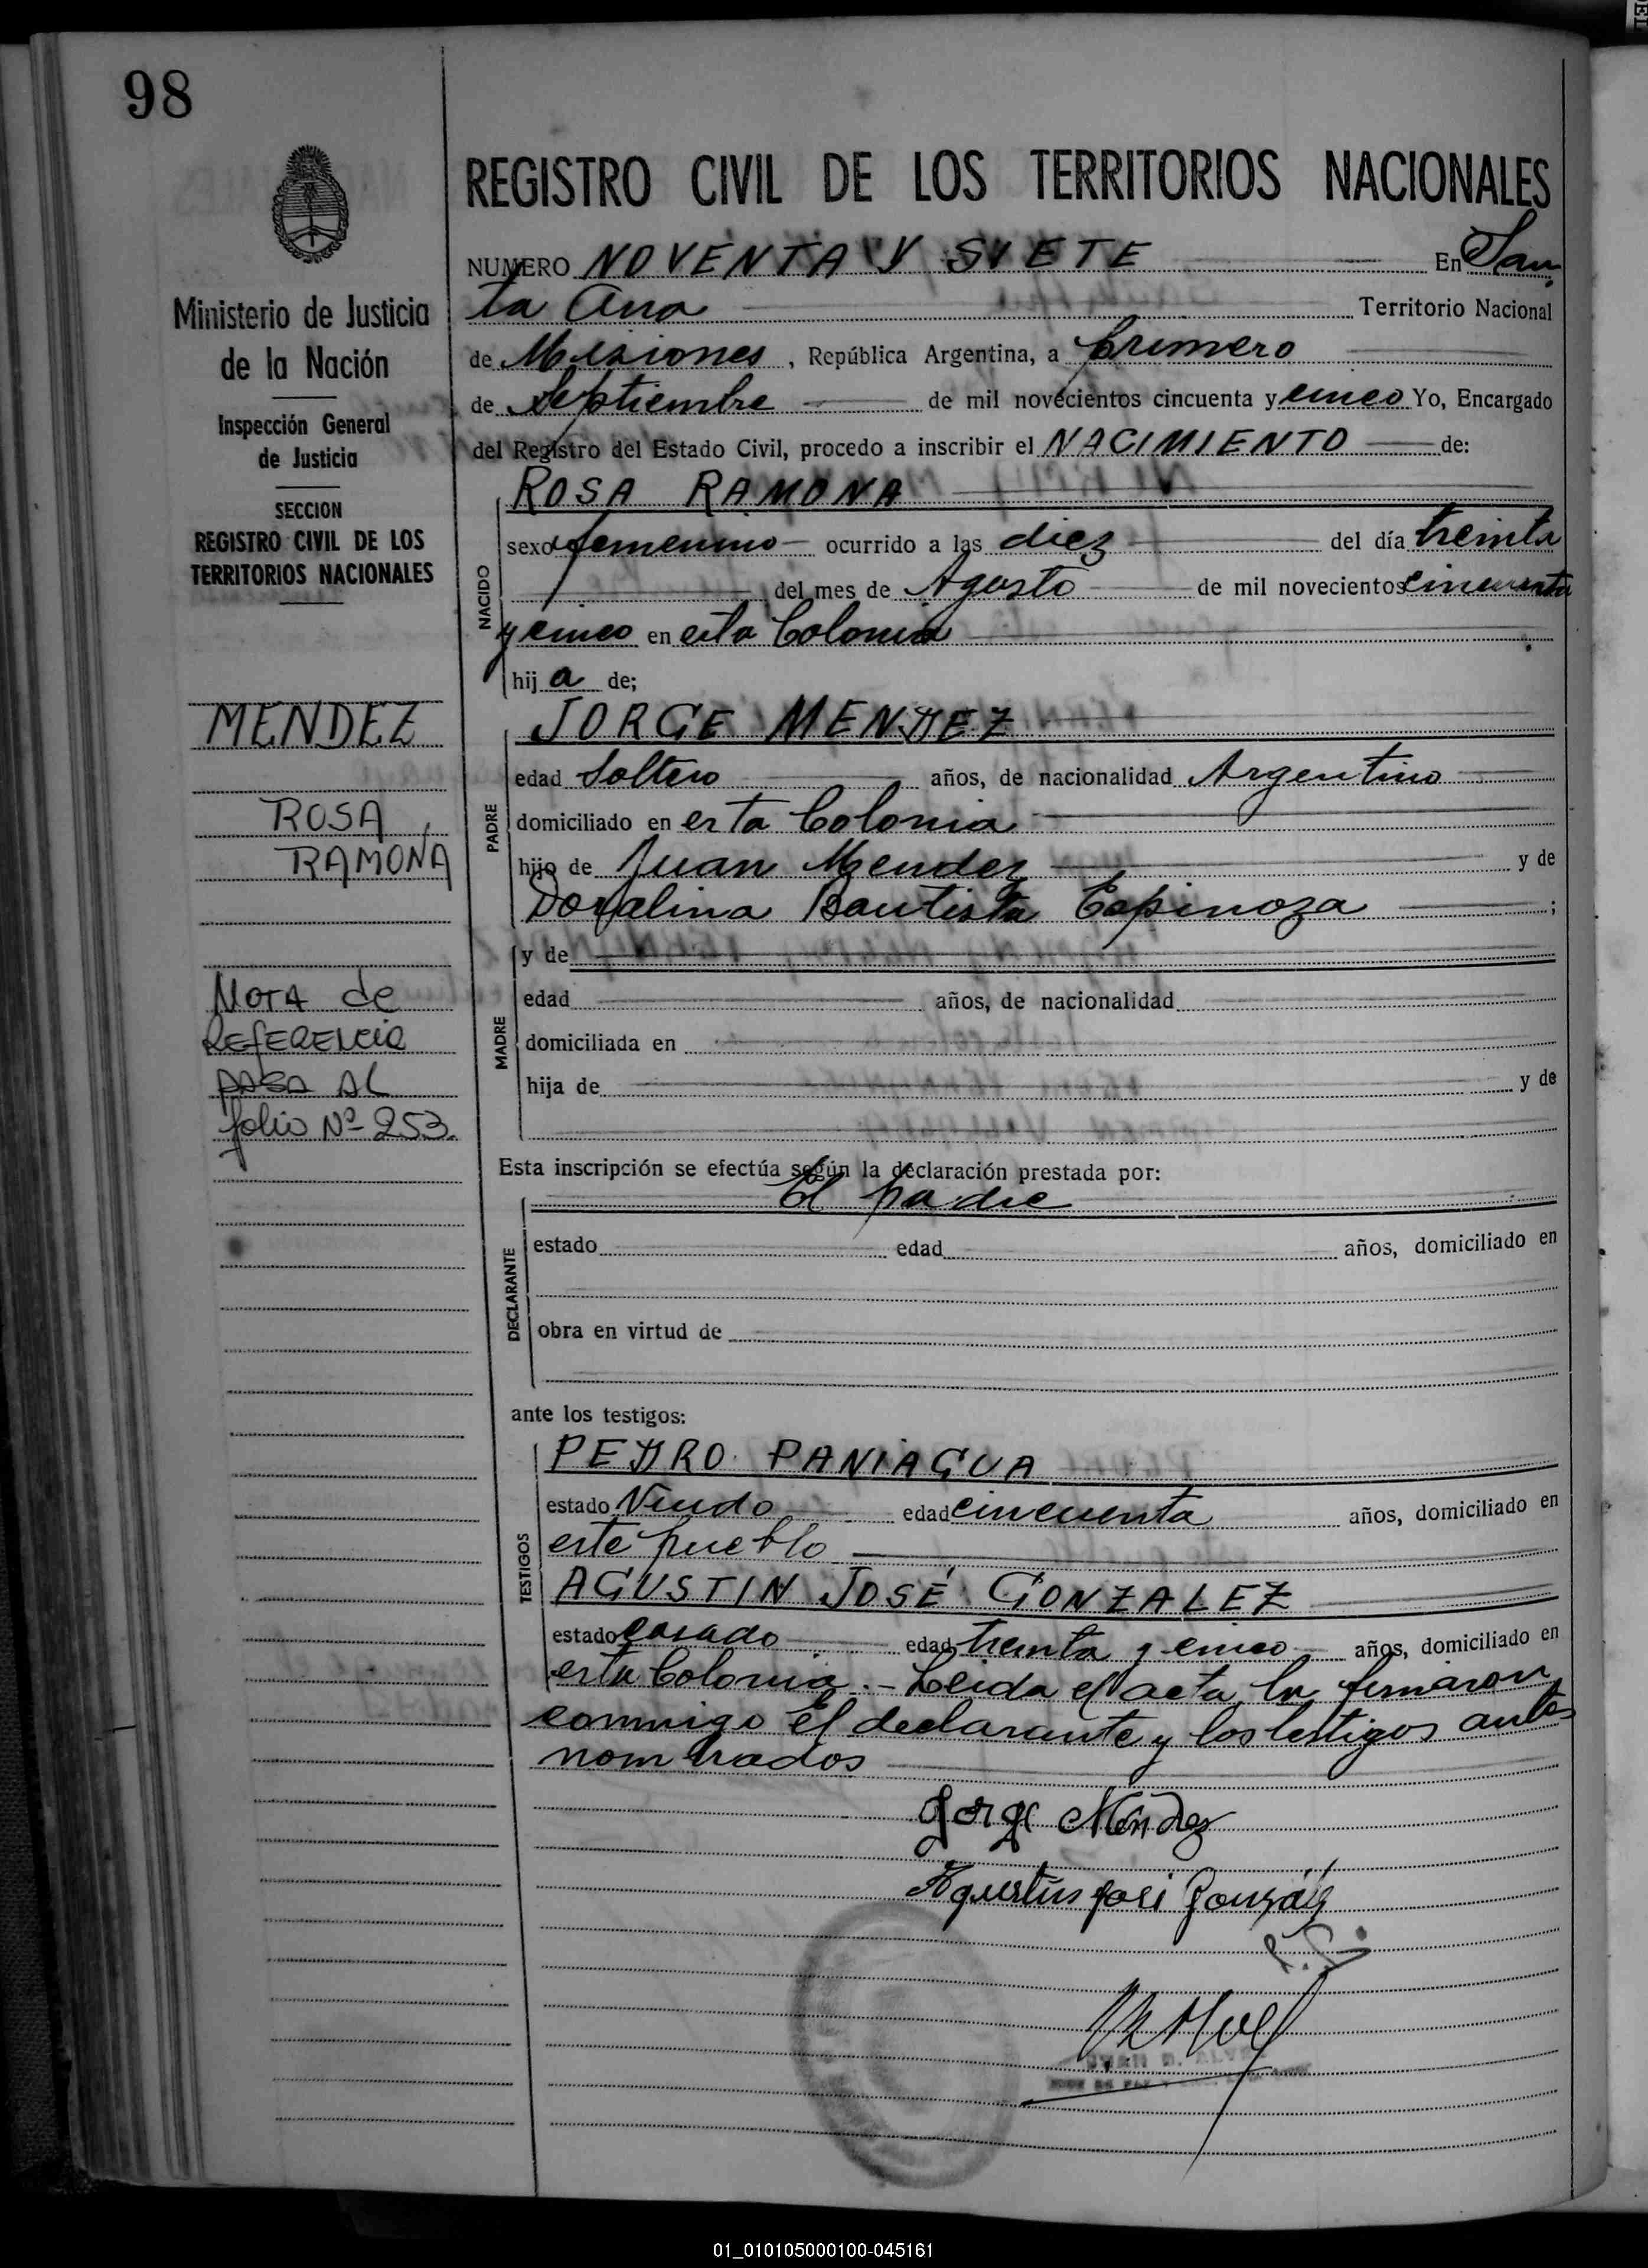 98
REGISTRO CIVIL DE LOS TERRITORIOS NACIONALES
NUMERO NOVENTA Y SIETE En San
ta Ana Territorio Nacional
de Misiones, República Argentina, a primero
de Septiembre de mil novecientos cincuenta y cinco Yo, Encargado
del Registro del Estado Civil, procedo a inscribir el NACIMIENTO de:
Ministerio de Justicia
de la Nación
Inspección General
de Justicia
SECCION
REGISTRO CIVIL DE LOS
TERRITORIOS NACIONALES
MENDEZ
ROSA
RAMONA
NOTA de
REFERENCIA
PASA AL
folio Nº 253.
NACIDO
ROSA RAMONA
sexo femenino ocurrido a las diez del día treinta
del mes de Agosto de mil novecientos cincuenta
y cinco en esta Colonia
hija de;
PADRE
JORGE MENDEZ
edad Soltero años, de nacionalidad Argentino
domiciliado en esta Colonia
hijo de Juan Mendez y de
Doralina Bautista Espinoza ;
MADRE
y de
edad años, de nacionalidad
domiciliada en
hija de y de
Esta inscripción se efectúa según la declaración prestada por:
El padre
DECLARANTE
estado edad años, domiciliado en
obra en virtud de
ante los testigos:
TESTIGOS
PEDRO PANIAGUA
estado Viudo edad cincuenta años, domiciliado en
este pueblo
AGUSTIN JOSÉ GONZALEZ
estado casado edad treinta y cinco años, domiciliado en
esta Colonia.- Leida el acta la firmaron
conmigo el declarante y los testigos antes
nombrados
Jorge Méndez
Agustín José González
01_010105000100-045161